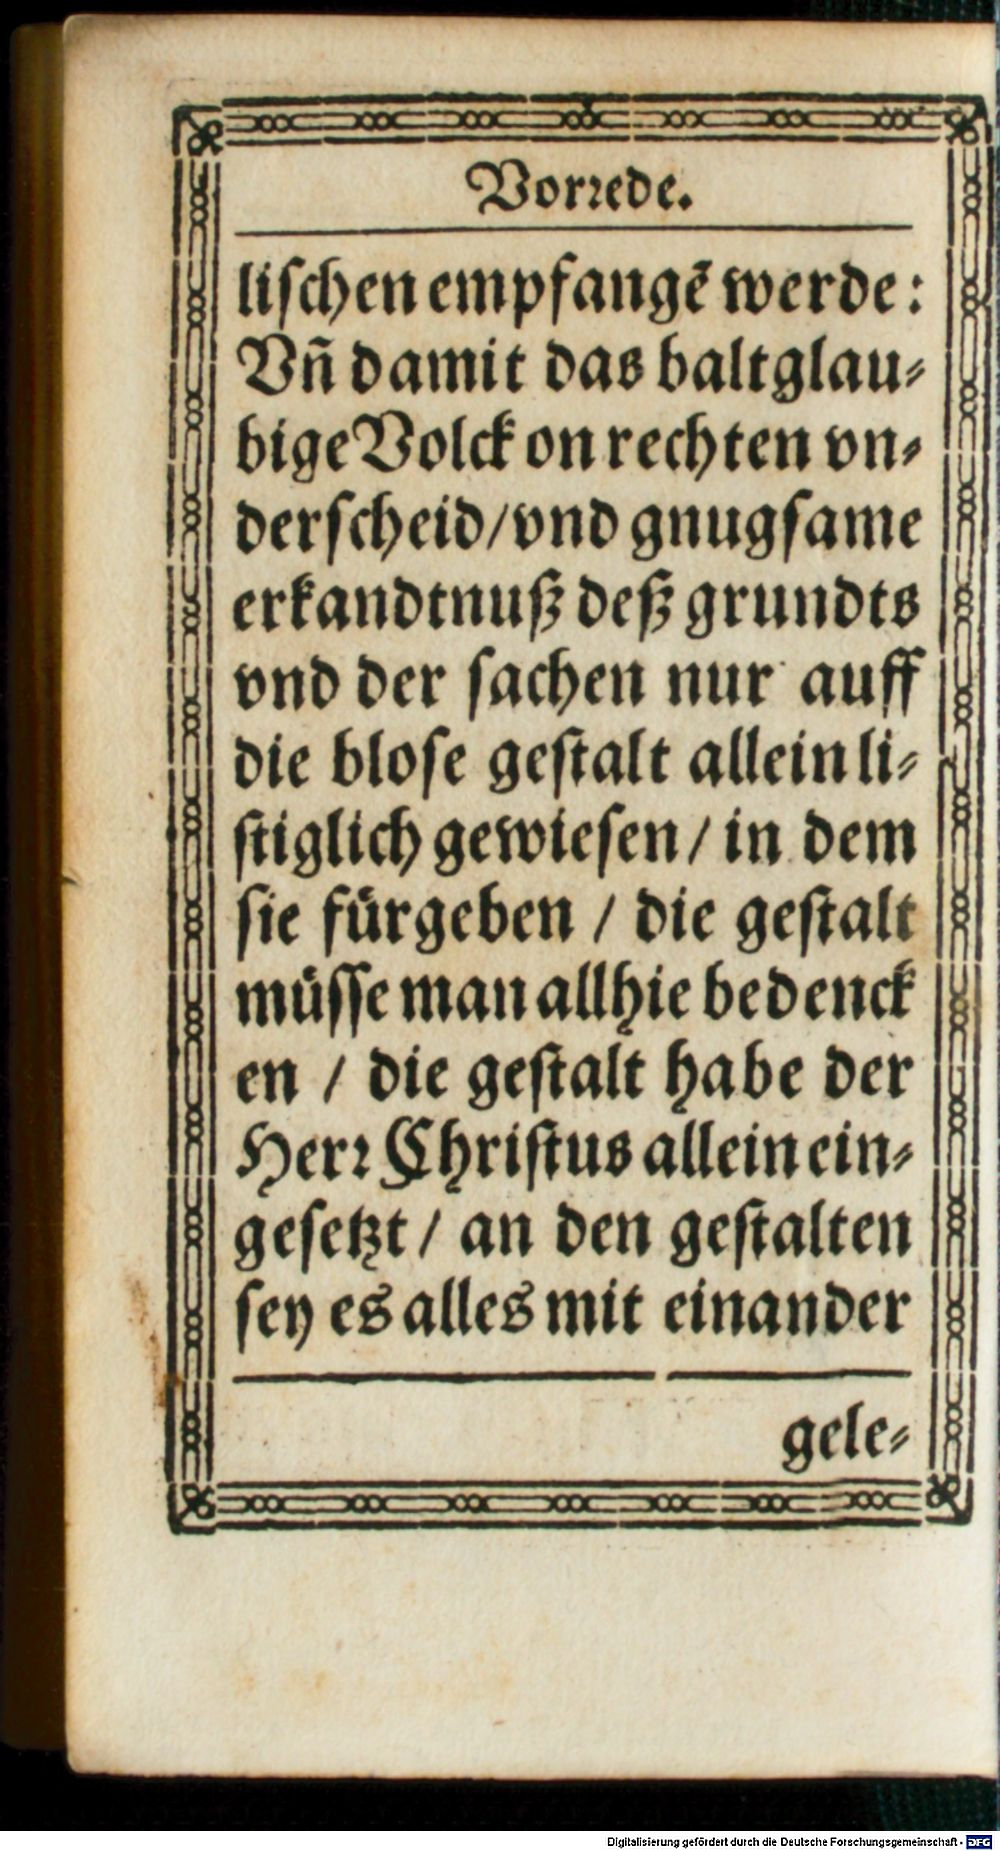 Vorꝛede.
liſchen empfangẽ werde:
Vñ damit das baltglau⸗
bige Volck on rechten vn⸗
derſcheid/vnd gnugſame
erkandtnuß deß grundts
vnd der ſachen nur auff
die bloſe geſtalt allein li⸗
ſtiglich gewieſen/ in dem
ſie fuͤrgeben / die geſtalt
muͤſſe man allhie bedenck
en / die geſtalt habe der
Herꝛ Chriſtus allein ein⸗
geſetzt/ an den geſtalten
ſey es alles mit einander
gele⸗
Digitalisierung gefördert durch die Deutsche Forschungsgemeinschaft - DFG